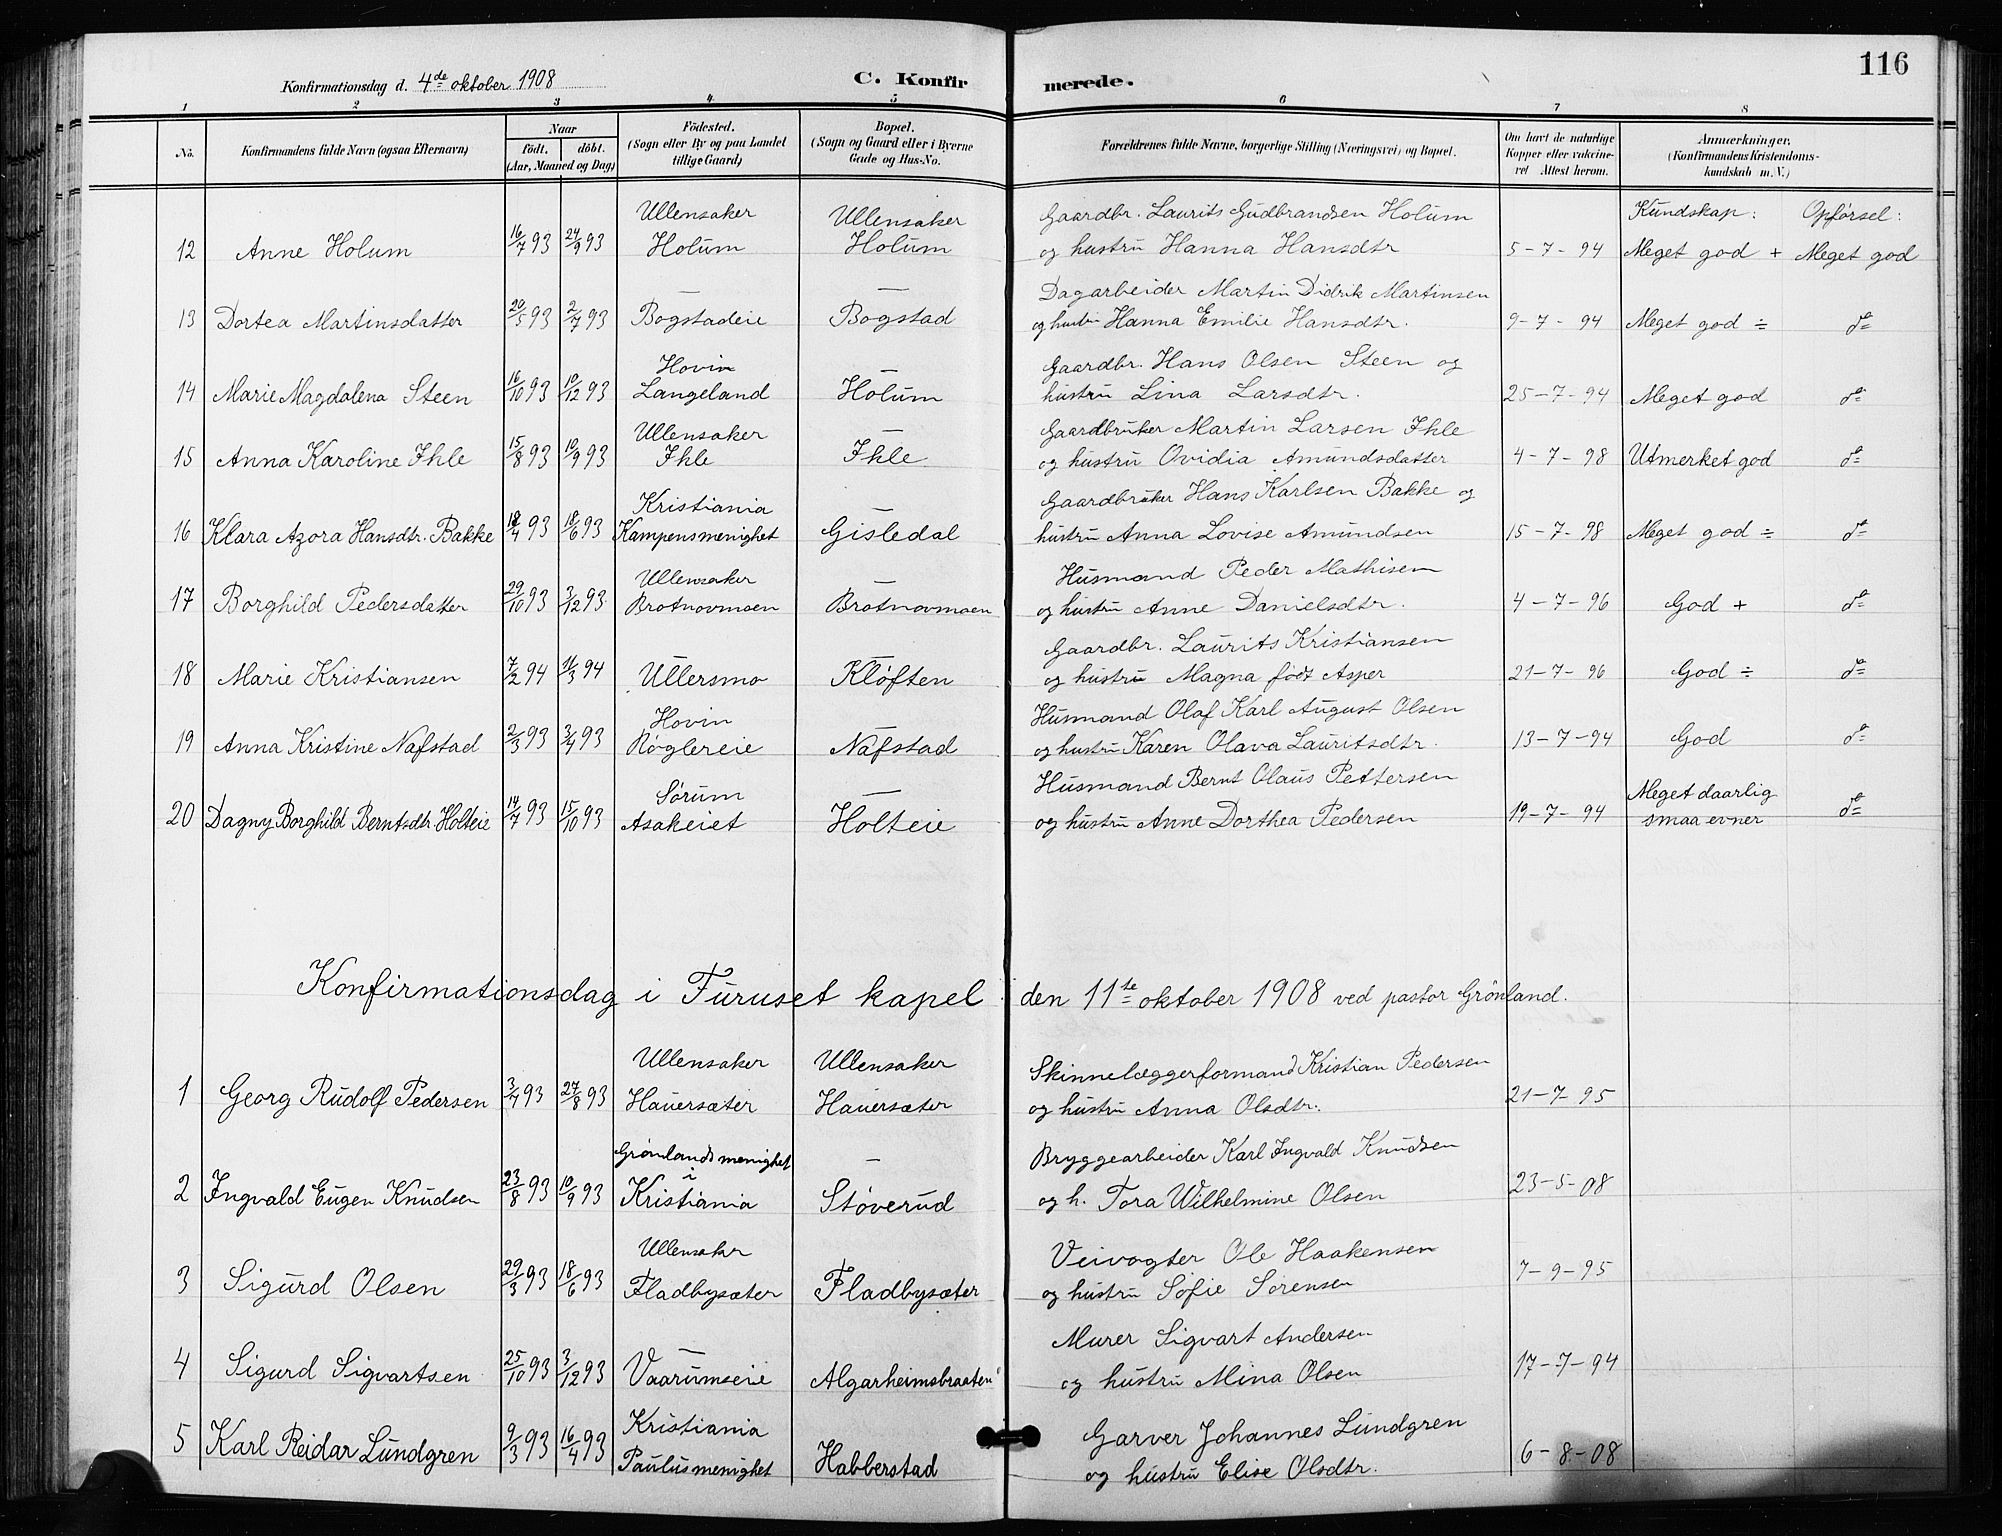 116
Konfirmationsdag d. 4de oktober 1908
C. Konfirmerede.
1 2 3 4 5 6 7 8
No. Konfirmandens fulde Navn (ogsaa Efternavn) Naar født. døbt. (Aar, Maaned og Dag) Fødested. (Sogn eller By og paa Landet tillige Gaard) Bopæl. (Sogn og Gaard eller i Byerne Gade og Hus-No. Forældrenes fulde Navne, borgerlige Stilling (Næringsvei) og Bopæl. Om havt de naturlige Kopper eller vakcineret Attest herom. Anmerkninger. (Konfirmandens Kristendomskundskab m. V.)
Ullensaker Ullensaker Gaardbr. Laurits Gudbrandsen Holum Kundskap: Opførsel:
12 Anne Holum 16/7 93 24/9 93 Holum Holum og hustru Hanna Hansdtr 5-7-94 Meget god + Meget god
— — Dagarbeider Martin Didrik Martinsen
13 Dortea Martinsdatter 20/5 93 2/7 93 Bogstadeie Bogstad og hustru Hanna Emilie Hansdtr. 9-7-94 Meget god ÷ do
Hovin — Gaardbr. Hans Olsen Steen og
14 Marie Magdalena Steen 16/10 93 10/12 93 Langeland Holum hustru Lina Larsdtr. 25-7-94 Meget god do
Ullensaker — Gaardbruker Martin Larsen Ihle
15 Anna Karoline Ihle 15/8 93 10/9 93 Ihle Ihle og hustru Ovidia Amundsdatter 4-7-98 Utmerket god do
Kristiania — Gaardbruker Hans Karlsen Bakke og
16 Klara Azora Hansdtr. Bakke /4 93 18/6 93 Kampensmenighet Gisledal hustru Anna Lovise Amundsen 15-7-98 Meget god ÷ do
Ullensaker — Husmand Peder Mathisen
17 Borghild Pedersdatter 29/10 93 3/12 93 Brotnovmoen Brotnovmoen og hustru Anne Danielsdtr. 4-7-96 God + do
Gaardbr. Laurits Kristiansen
18 Marie Kristiansen 7/2 94 11/3 94 Ullersmo Kløften og hustru Magna født Asper 21-7-96 God ÷ do
Hovin Husmand Olaf Karl August Olsen
19 Anna Kristine Nafstad 2/3 93 3/4 93 Røglereie Nafstad og hustru Karen Olava Lauritsdtr. 13-7-94 God do
Sørum — Husmand Bernt Olaus Pettersen Meget daarlig
20 Dagny Borghild Berntsdtr Holteie 14/7 93 15/10 93 Asakeiet Holteie og hustru Anne Dorthea Pedersen 19-7-94 smaa evner do
Konfirmationsdag i Furuset kapel den 11te oktober 1908 ved pastor Grönland.
Ullensaker Ullensaker Skinnelæggerformand Kristian Pedersen
1 Georg Rudolf Pedersen 3/7 93 27/8 93 Hauersæter Hauersæter og hustru Anna Olsdtr. 21-7-95
Grønlands menighet i — Bryggearbeider Karl Ingvald Knudsen
2 Ingvald Eugen Knudsen 23/8 93 10/9 93 Kristiania Støverud og h. Tora Wilhelmine Olsen 23-5-08
Ullensaker Veivogter Ole Haakensen
3 Sigurd Olsen 29/3 93 18/6 93 Fladbysæter Fladbysæter og hustru Sofie Sorensen 7-9-95
— Murer Sigvart Andersen
4 Sigurd Sigvartsen 25/10 93 3/12 93 Vaarumseie Algarheimsbraaten og hustru Mina Olsen 17-7-94
Kristiania Garver Johannes Lundgren
5 Karl Reidar Lundgren 9/3 93 16/4 93 Paulusmenighet Habberstad og hustru Elise Olsdtr. 6-8-08